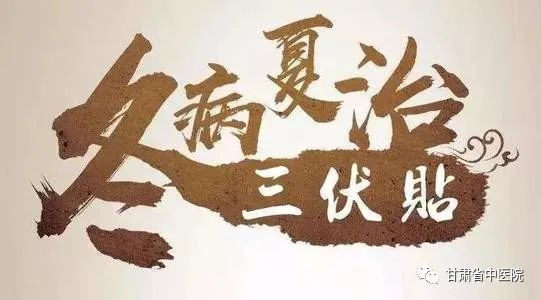 冬病夏治
三伏貼
甘肃省中医院